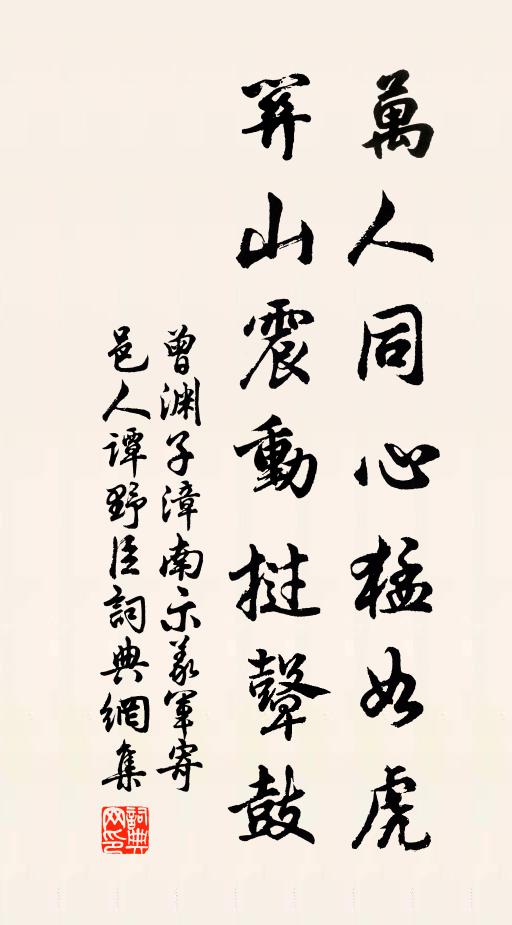 萬人同心猛如虎
笄山震動撻鼙鼓
曾渊子漳南示義軍寄
邑人谭野臣詞典網集
詞典
网印